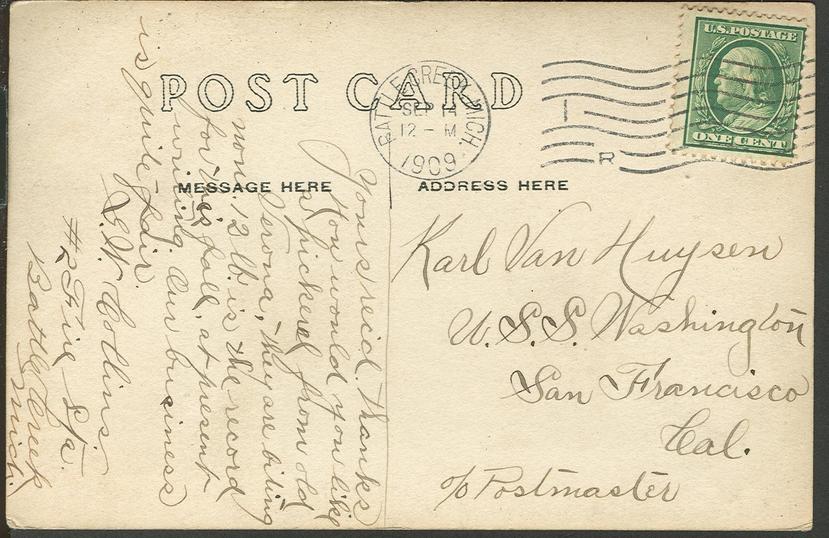 POST CARD
BATTLE CREEK, MICH.
SEP 14
12 - M
1909
R
U.S. POSTAGE
ONE CENT
MESSAGE HERE
ADDRESS HERE
Yours recid. thanks
You would you like
a pickerel from old
Verona, they are biting
now. 12 lb. is the record
for this fall, at present
writing. Our business
is quite fair.
Collins
#2 Fire Sta.
Battle Creek
Mich.
Karl Van Huysen
U.S.S. Washington
San Francisco
Cal.
c/o Postmaster